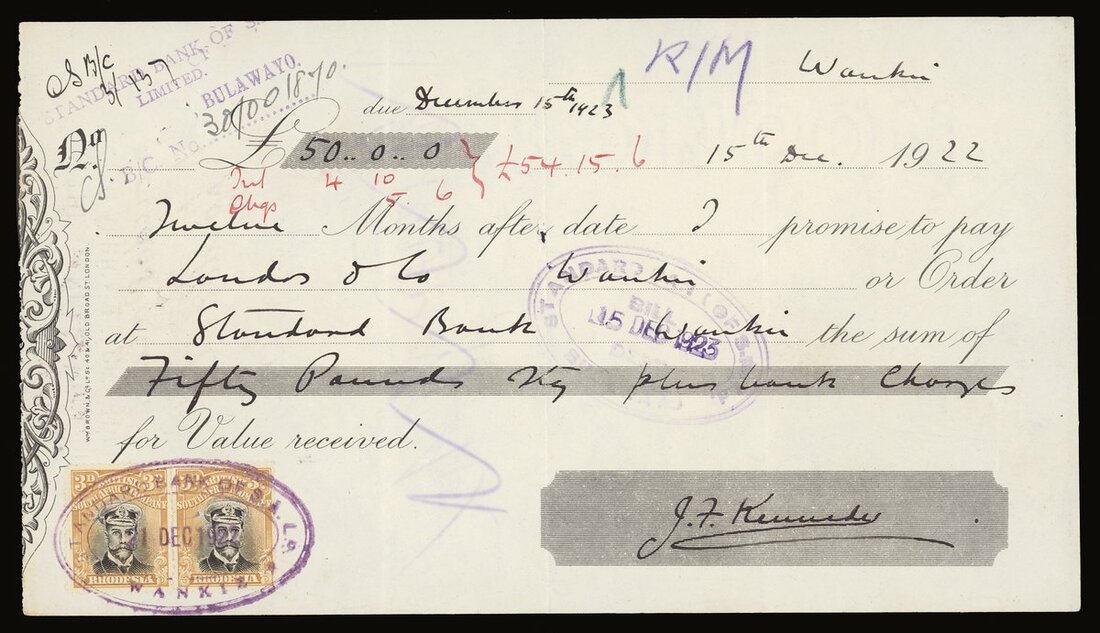 STANDARD BANK OF S.
LIMITED.
BULAWAYO.
B/C. No. 30/001870.
R/M
Wankie
due December 15th 1923
No.
£ 50..0..0 } £54.15.6 15th Dec. 1922
Int 4 10
Chgs 5. 6
Twelve Months after date I promise to pay
London & Co Wankie or Order
at Standard Bank Wankie the sum of
Fifty Pounds Stg plus bank Charges
for Value received.
STANDARD BANK OF S.A.
BILL
15 DEC 1923
J. F. Kennedy
3D 3D
BRITISH
SOUTH AFRICA COMPANY
SOUTH AFRICA COMPANY
RHODESIA RHODESIA
STANDARD BANK OF S.A. LD.
21 DEC 1922
WANKIE